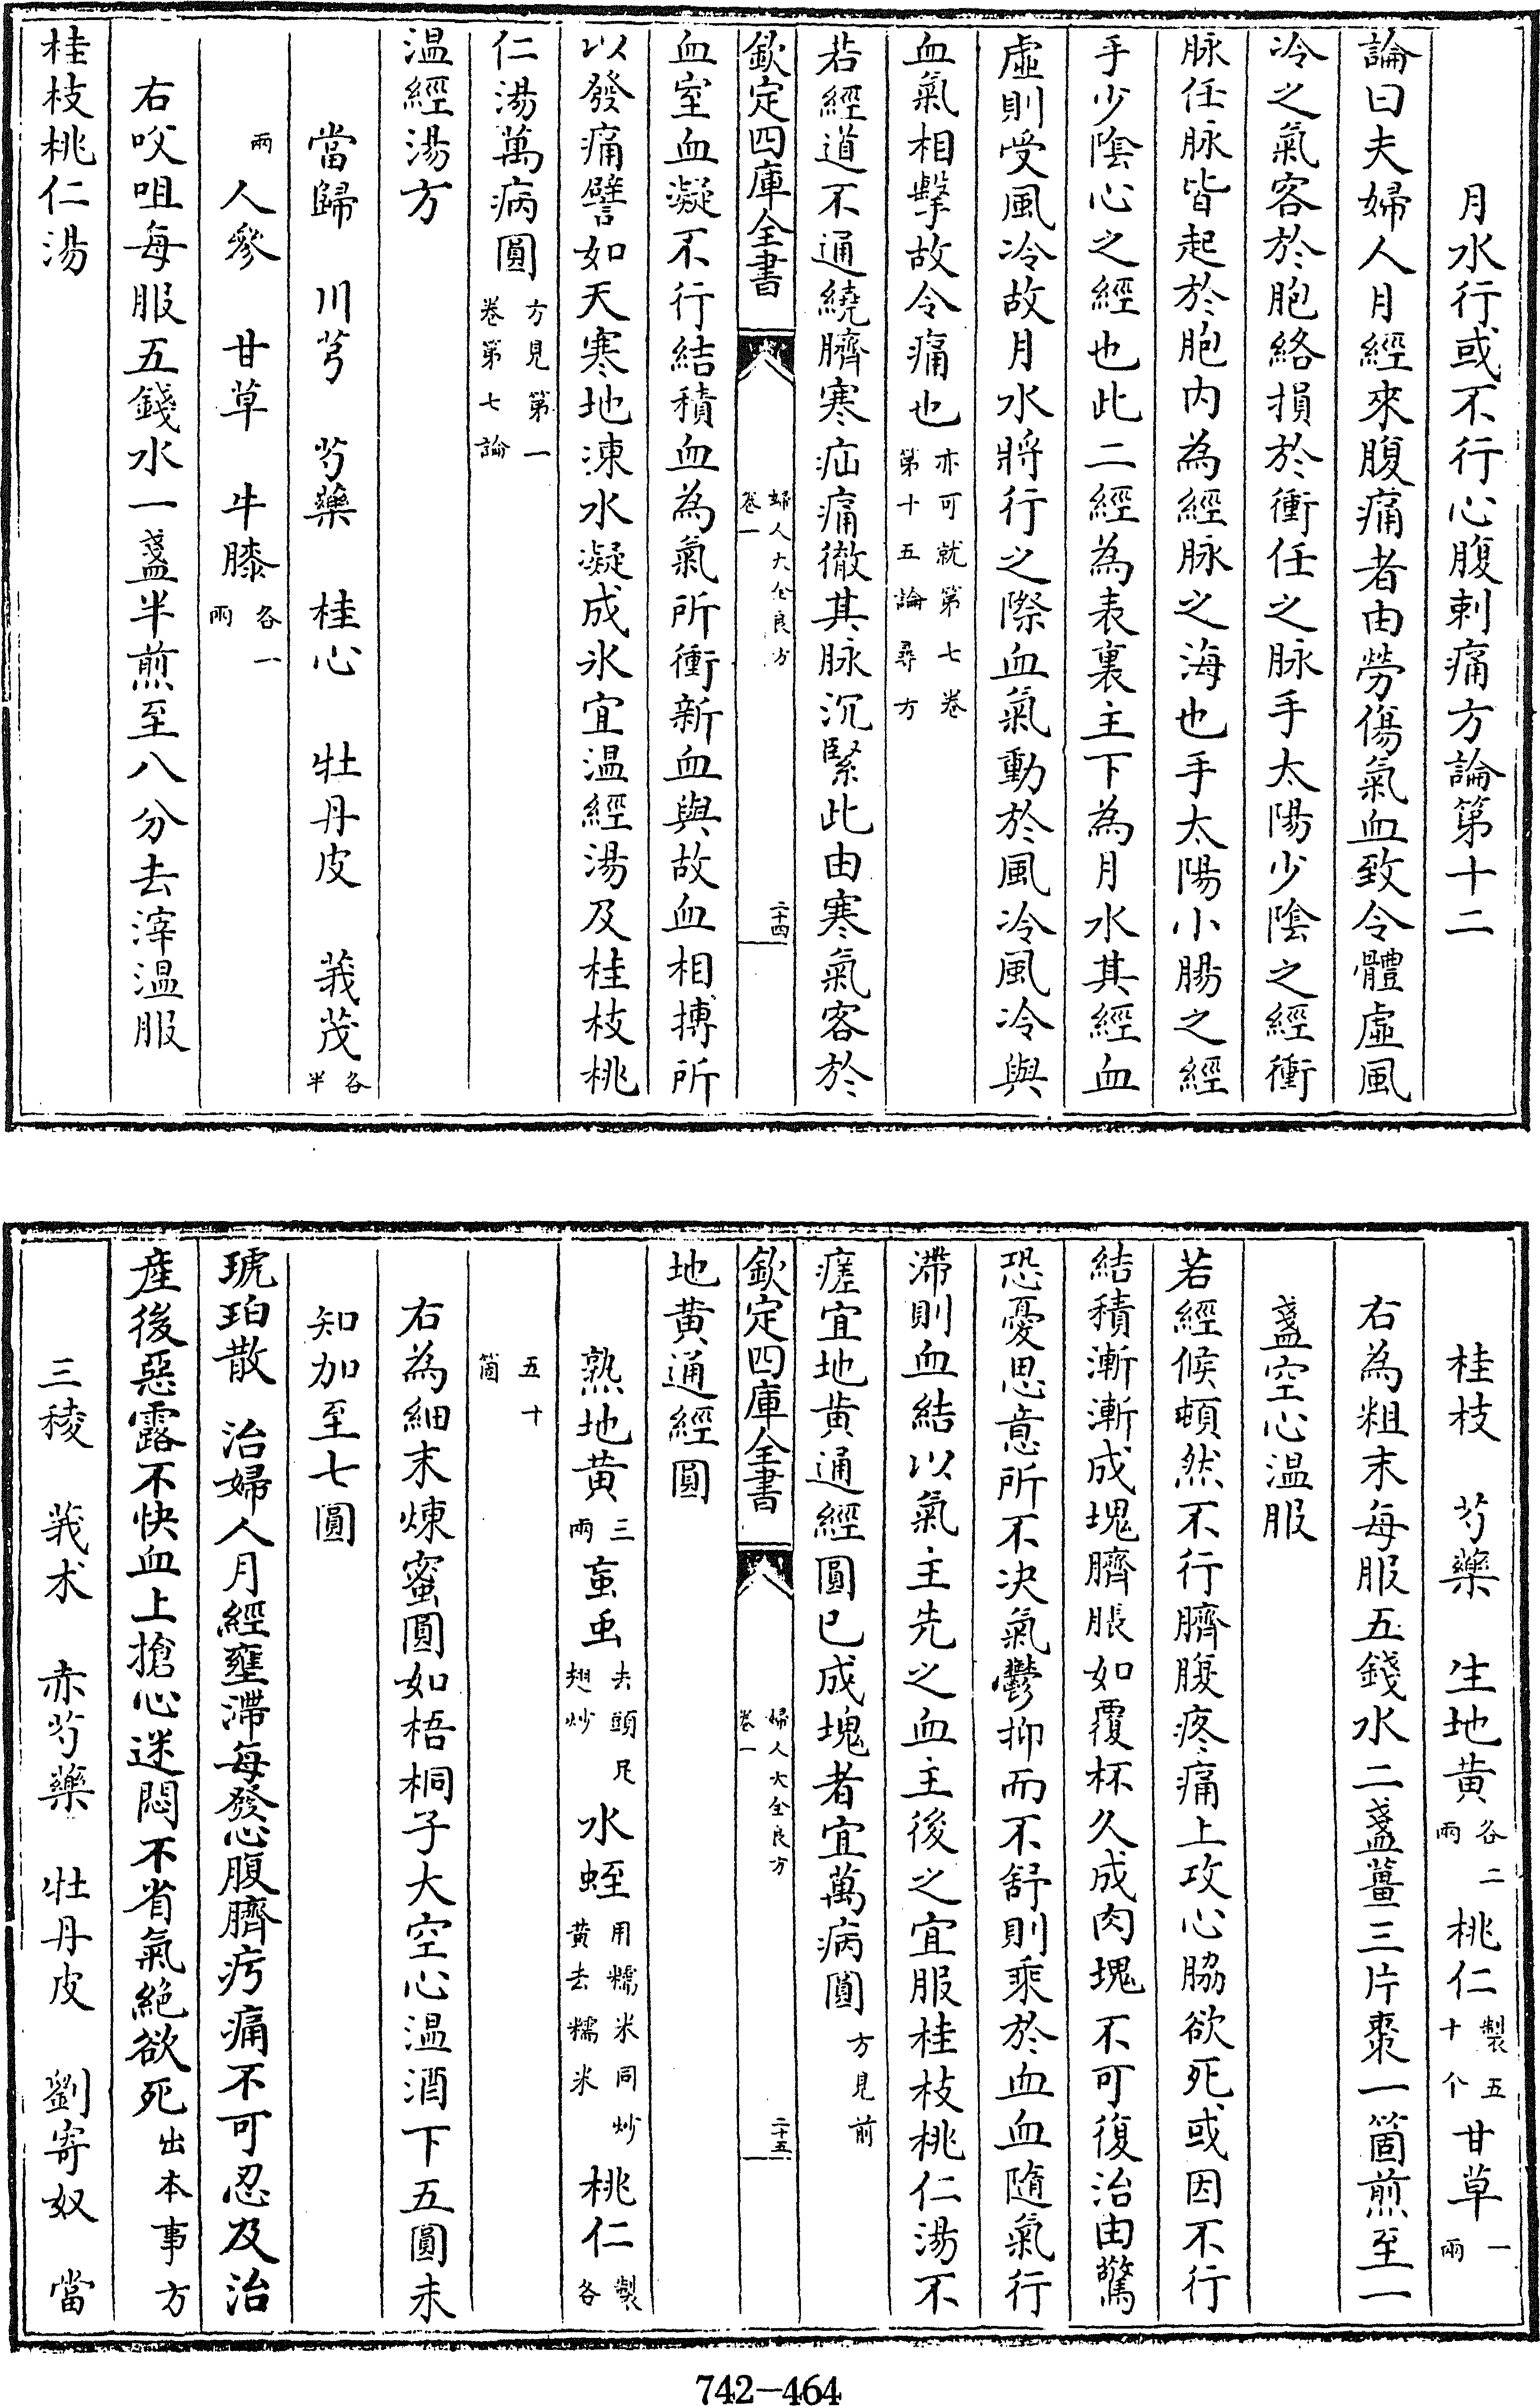 月水行或不行心腹刺痛方論第十二
論曰夫婦人月經來腹痛者由勞傷氣血致令體虛風
冷之氣客於胞絡損於衝任之脉手太陽少陰之經衝
脉任脉皆起於胞内為經脉之海也手太陽小腸之經
手少陰心之經也此二經為表裏主下為月水其經血
虛則受風冷故月水將行之際血氣動於風冷風冷與
血氣相擊故令痛也亦可就第七卷第十五論尋方
若經道不通繞臍寒疝痛徹其脉沉緊此由寒氣客於
欽定四庫全書 婦人大全良方卷一 二十四
血室血凝不行結積血為氣所衝新血與故血相搏所
以發痛譬如天寒地凍水凝成氷宜温經湯及桂枝桃
仁湯萬病圓方見第一卷第七論
温經湯方
當歸 川芎 芍藥 桂心 牡丹皮 莪茂各半
兩 人參 甘草 牛膝各一兩
右㕮咀每服五錢水一盞半煎至八分去滓温服
桂枝桃仁湯
桂枝 芍藥 生地黄各二兩 桃仁製五十个 甘草一兩
右為粗末每服五錢水二盞薑三片棗一箇煎至一
盞空心温服
若經候頓然不行臍腹疼痛上攻心脇欲死或因不行
結積漸漸成塊臍脹如覆杯久成肉塊不可復治由驚
恐憂思意所不决氣鬱抑而不舒則乘於血血隨氣行
滯則血結以氣主先之血主後之宜服桂枝桃仁湯不
瘥宜地黄通經圓已成塊者宜萬病圓方見前
欽定四庫全書 婦人大全良方卷一 二十五
地黄通經圓
熟地黄三兩 䖟䖝去頭足翅炒 水蛭用糯米同炒黄去糯米 桃仁製各
五十箇
右為細末煉蜜圓如梧桐子大空心温酒下五圓未
知加至七圓
琥珀散 治婦人月經壅滯每發心腹臍㽱痛不可忍及治
産後惡露不快血上搶心迷悶不省氣絶欲死出本事方
三稜 莪术 赤芍藥 牡丹皮 劉寄奴 當
742-464